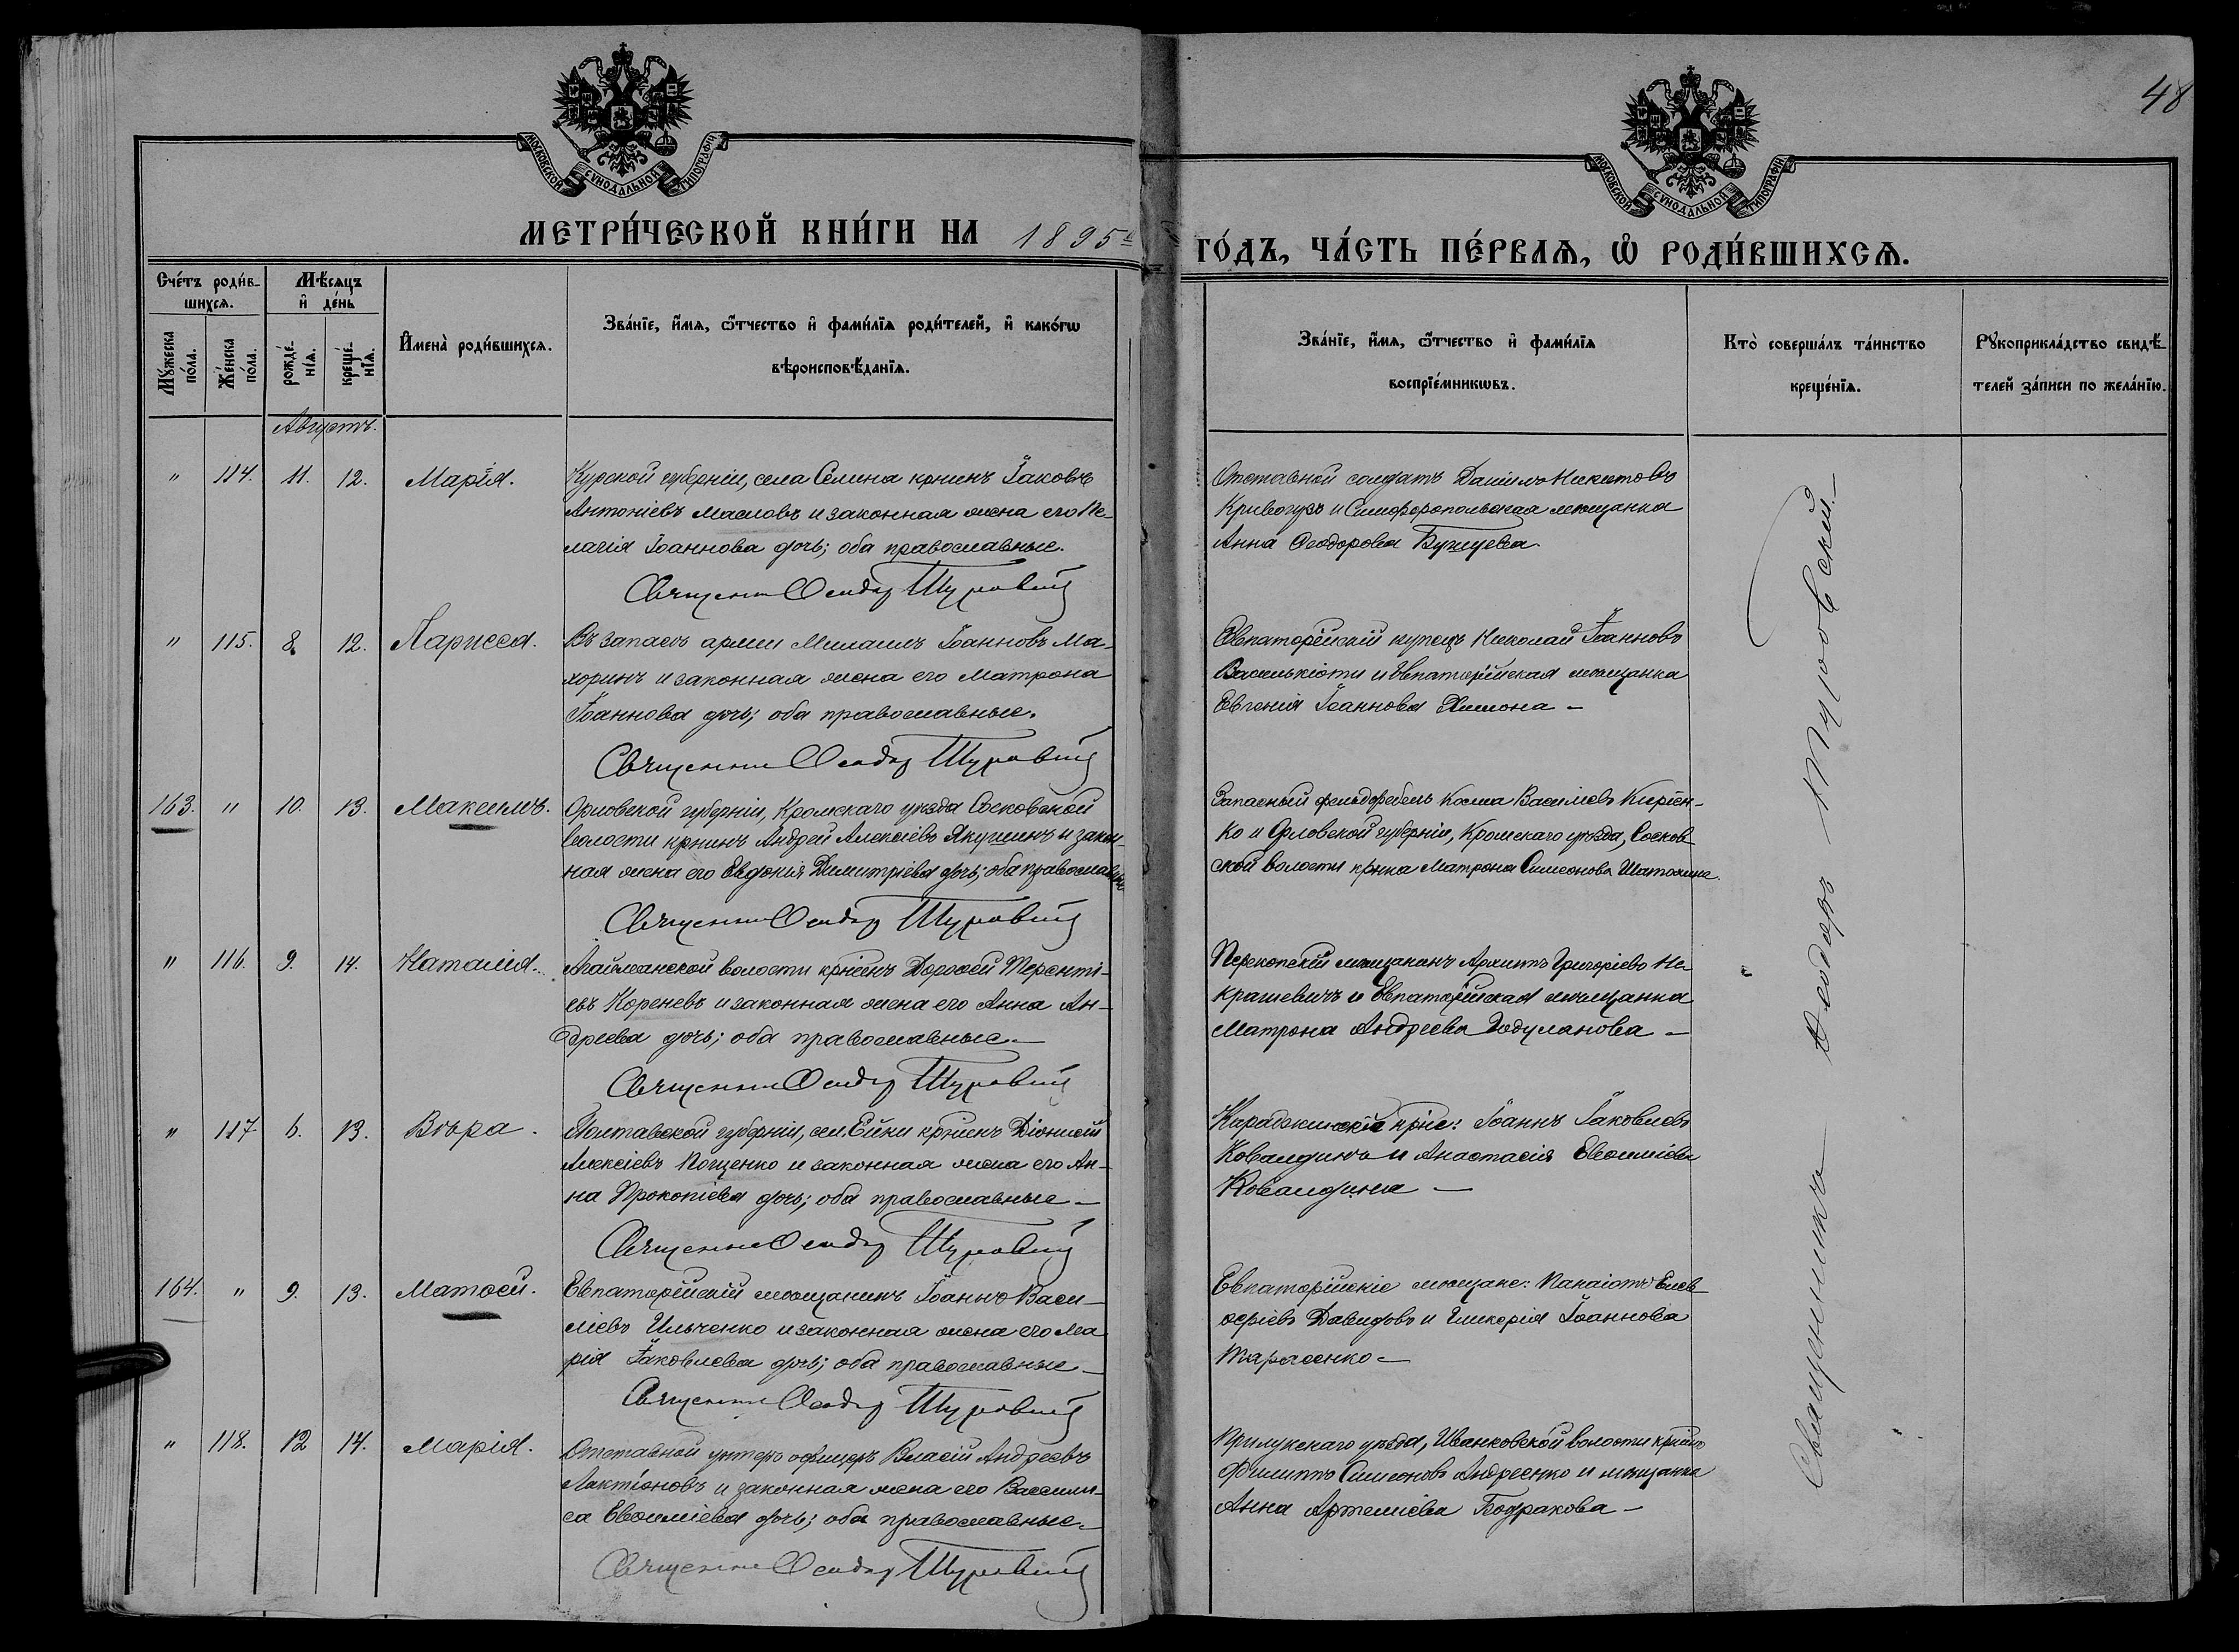 48
МОСКОВСКОЙ СѴНОДАЛЬНОЙ ТИПОГРАФІИ
МОСКОВСКОЙ СѴНОДАЛЬНОЙ ТИПОГРАФІИ
МЕТРИ́ЧЕСКОЙ КНИ́ГИ НА 1895й ГО́ДЪ, ЧА́СТЬ ПЕ́РВАЯ, Ѡ РОДИ́ВШИХСЯ.
Сче́тъ роди́в-
шихся.
Мѣ́сяцъ
и҆ де́нь
Мꙋ́жеска
по́ла.
Же́нска
по́ла.
рожде́-
нїя.
креще́-
нїя.
И҆мена̀ роди́вшихся.
Зва́нїе, и҆́мя, ѻ҆́тчество и҆ фамѝлїя роди́телей, и҆ како́гѡ
вѣроисповѣ́данїя.
Зва́нїе, и҆́мя, ѻ҆́тчество и҆ фамѝлїя
воспрїе́мникѡвъ.
Кто̀ соверша́лъ та́инство
креще́нїя.
Рꙋкоприкла́дство свидѣ́-
телей за́писи по жела́нїю.
Августъ.
" 114. 11. 12. Марія.
Курской губерніи, села Селина крнинъ Іаковъ
Антоніевъ Масловъ и законная жена его Пе-
лагія Іоаннова дочь; оба православные.
Священникъ Ѳеодоръ Туровскій
Отставной солдатъ Даніилъ Никитовъ
Кривогузъ и Симферопольская мѣщанка
Анна Ѳеодорова
" 115. 8. 12.Ларисса.
Въ запасѣ арміи Іоанновъ Ма-
хоринъ и законная жена его Матрона
Іоаннова дочь; оба православные.
Священникъ Ѳеодоръ Туровскій
Евпаторійскій купецъ Николай Іоанновъ
Василькіоти и Евпаторійская мѣщанка
Евгенія Іоаннова
163. " 10. 13. Максимъ.
Орловской губерніи, Кромскаго уѣзда Сосковской
волости крнинъ Андрей Алексіевъ Якушинъ и закон-
ная жена его Евдокія Димитріева дочь; оба православные
Священникъ Ѳеодоръ Туровскій
Запасный фельдфебель Косма Василіевъ Киріен-
ко и Орловской губерніи, Кромскаго уѣзда, Сосков-
ской волости крнка Матрона Симеонова
" 116. 9. 14. Наталія.
Агайманской волости крнинъ Дороѳей Терентi-
евъ Кореневъ и законная жена его Анна Ан-
дреева дочь; оба православные.—
Священникъ Ѳеодоръ Туровскій
Перекопскій мѣщанинъ Архипъ Григоріевъ Не-
крашевичъ и Евпаторійская мѣщанка
Матрона Андреева Годуланова —
" 117. 6. 13. Вѣра.
Полтавской губерніи, сел. крнинъ Діонисій
Алексіевъ Пощенко и законная жена его Ан-
на Прокопіева дочь; оба православные —
Священникъ Ѳеодоръ Туровскій
крне: Іоаннъ Іаковлевъ
Ковалдинъ и Анастасія Евѳиміева
Ковалдина —
164. " 9. 13. Матѳей.
Евпаторійскій мѣщанинъ Іоаннъ Васи-
ліевъ Ильченко и законная жена его Ма-
рія Іаковлева дочь; оба православные —
Священникъ Ѳеодоръ Туровскій
Евпаторійскіе мѣщане: Панаіотъ Елев-
ѳеріевъ Давидовъ и Гликерія Іоаннова
Тарасенко —
" 118. 12 14. Марія.
Отставной унтеръ офицеръ Власій Андреевъ
Лактіоновъ и законная жена его Васcили-
са Евѳиміева дочь; оба православные —
Священникъ Ѳеодоръ Туровскій
Прилукскаго уѣзда, Иванковской волости крнинъ
Филиппъ Симеоновъ Андреенко и мѣщанка
Анна Артеміева Бодракова —
Священникъ Ѳеодоръ Туровскій